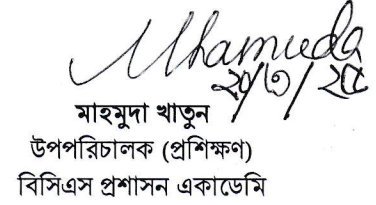 Mhamuda
২০/৩/২৫
মাহমুদা খাতুন
উপপরিচালক (প্রশিক্ষণ)
বিসিএস প্রশাসন একাডেমি